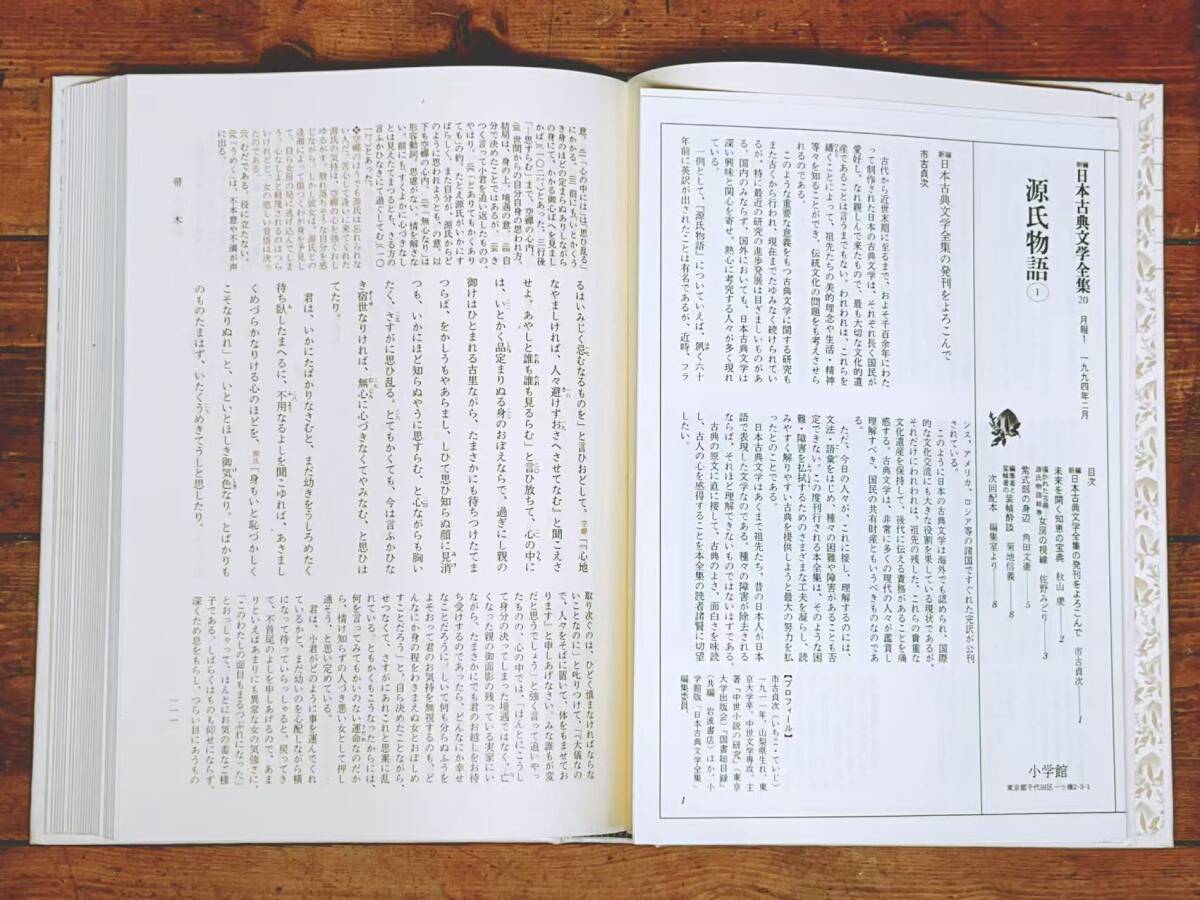 新編日本古典文学全集20　月報1　一九九四年二月
源氏物語①
目次
新編日本古典文学全集の発刊をよろこんで　市古貞次　1
未来を開く知恵の宝典　秋山虔　2
描かれた古典
源氏物語絵巻　女房の視線　佐野みどり　3
紫式部の身辺　角田文衞　5
編集者と
装幀者の　装幀酔談　菊地信義　8
次回配本　編集室より　8
小学館
東京都千代田区一ツ橋2-3-1
新編日本古典文学全集の発刊をよろこんで
市古貞次
古代から近世末期に至るまで、およそ千百余年にわた
って制作された日本の古典文学は、それぞれ長く国民が
愛好し、なれ親しんで来たもので、最も大切な文化的遺
産であることは言うまでもない。われわれは、これらを
繙くことによって、祖先たちの美的理念や生活・精神
等々を知ることができ、伝統文化の問題をも考えさせら
れるのである。
このような重要な意義をもつ古典文学に関する研究も
また古くから行われ、現在までたゆみなく続けられてい
るが、特に最近の研究の進歩発展は目ざましいものがあ
る。国内のみならず、国外においても、日本古典文学は
深い興味と関心を寄せ、熱心に考究する人々が多く現れ
一例として、『源氏物語』についていえば、夙く六十
年前に英訳が出されたことは有名であるが、近時、フラ
ンス、アメリカ、ロシア等の諸国ですぐれた完訳が公刊
されている。
このように日本の古典文学は海外でも認められ、国際
的な文化交流にも大きな役割を果している現状であるが、
それだけにわれわれは、祖先の残した、これらの貴重な
文化遺産を保持して、後代に伝える責務があることを痛
感する。古典文学は、非常に多くの現代の人々が鑑賞し
理解すべき、国民の共有財産ともいうべきものなのであ
る。
ただ、今日の人々が、これに接し、理解するのには、
文法・語彙をはじめ、種々の困難や障害があることも否
定できない。この度刊行される本全集は、そのような困
難・障害を払拭するためのさまざまな工夫を凝らし、読
みやすく解りやすい古典を提供しようと最大の努力を払
ったとのことである。
日本古典文学はあくまで祖先たち、昔の日本人が日本
語で表現した文学なのである。種々の障害が除去される
ならば、それほど理解できないものではないはずである。
古典の原文に直に接して、古典のよさ、面白さを味読
し、古人の心を感得することを本全集の読者諸賢に切望
したい。
【プロフィール】
市古貞次（いちこ・ていじ）
一九一一年、山梨県生れ。東
京大学卒。中世文学専攻。主
著『中世小説の研究』（東京
大学出版会）『国書総目録』
（共編、岩波書店）ほか。小
学館版『日本古典文学全集』
編集委員。
1
帚木
一一一
るはいみじく忌むなるものを」と言ひおどして、空蝉「『心地
なやましければ、人々避けずおさへさせてなむ』と聞こえさ
せよ。あやしと誰も誰も見るらむ」と言ひ放ちて、心の中に
は、いとかく品定まりぬる身のおぼえならで、過ぎにし親の
御けはひとまれる古里ながら、たまさかにも待ちつけたてま
つらば、をかしうもやあらまし、しひて思ひ知らぬ顔に見消
つも、いかにほど知らぬやうに思すらむ、と心ながらも胸い
たく、さすがに思ひ乱る。とてもかくても、今は言ふかひな
き宿世なりければ、無心に心づきなくてやみなむ、と思ひは
てたり。
君は、いかにたばかりなさむと、まだ幼きをうしろめたく
待ち臥したまへるに、不用なるよしを聞こゆれば、あさまし
くめづらかなりける心のほどを、源氏「身もいと恥づかしく
こそなりぬれ」と、いといとほしき御気色なり。とばかりも
ものものたまはず、いたくうめきてうしと思したり。
取り次ぐのは、ひどく慎まなければならな
いことなのに」と叱りつけて、「『大儀なの
で、人々をそばに置いて、体をもませてお
ります』と申しあげなさい。みな誰もが変
だと思うでしょう」と強く言って追いやっ
たものの、心の中では、「ほんとにこうし
て身分の決ってしまった境遇ではなく、亡
くなった親の御面影の残っている実家にい
ながら、たまさかにでも君のお越しをお待
ち受けするのであったら、どんなにか幸せ
なことだろうに。しいて何も分らぬふうを
よそおって君のお気持を無視するのも、ど
んなにか身の程をわきまえぬ女とおぼしめ
すことだろう」と、自ら決めたことながら、
せつなくて、さすがにあれこれと思案に乱
れている。ともかくもこうなったからには、
何を言ってみてもかいのない運命なのだか
ら、情け知らずの人づき悪い女として押し
通そう、と思い定めている。
君は、小君がどのように事を運んでくれ
ているかと、まだ幼いのを心配しながら横
になって待っていらっしゃると、戻ってき
て、不首尾のよしを申しあげるので、あま
りといえばあまりにも異常な女の気強さに、
「このわたしの面目もまるつぶれになった」
とおっしゃって、ほんとにお気の毒なご様
子である。しばらくはものも仰せにならず、
深くため息をもらし、つらい目にあうもの